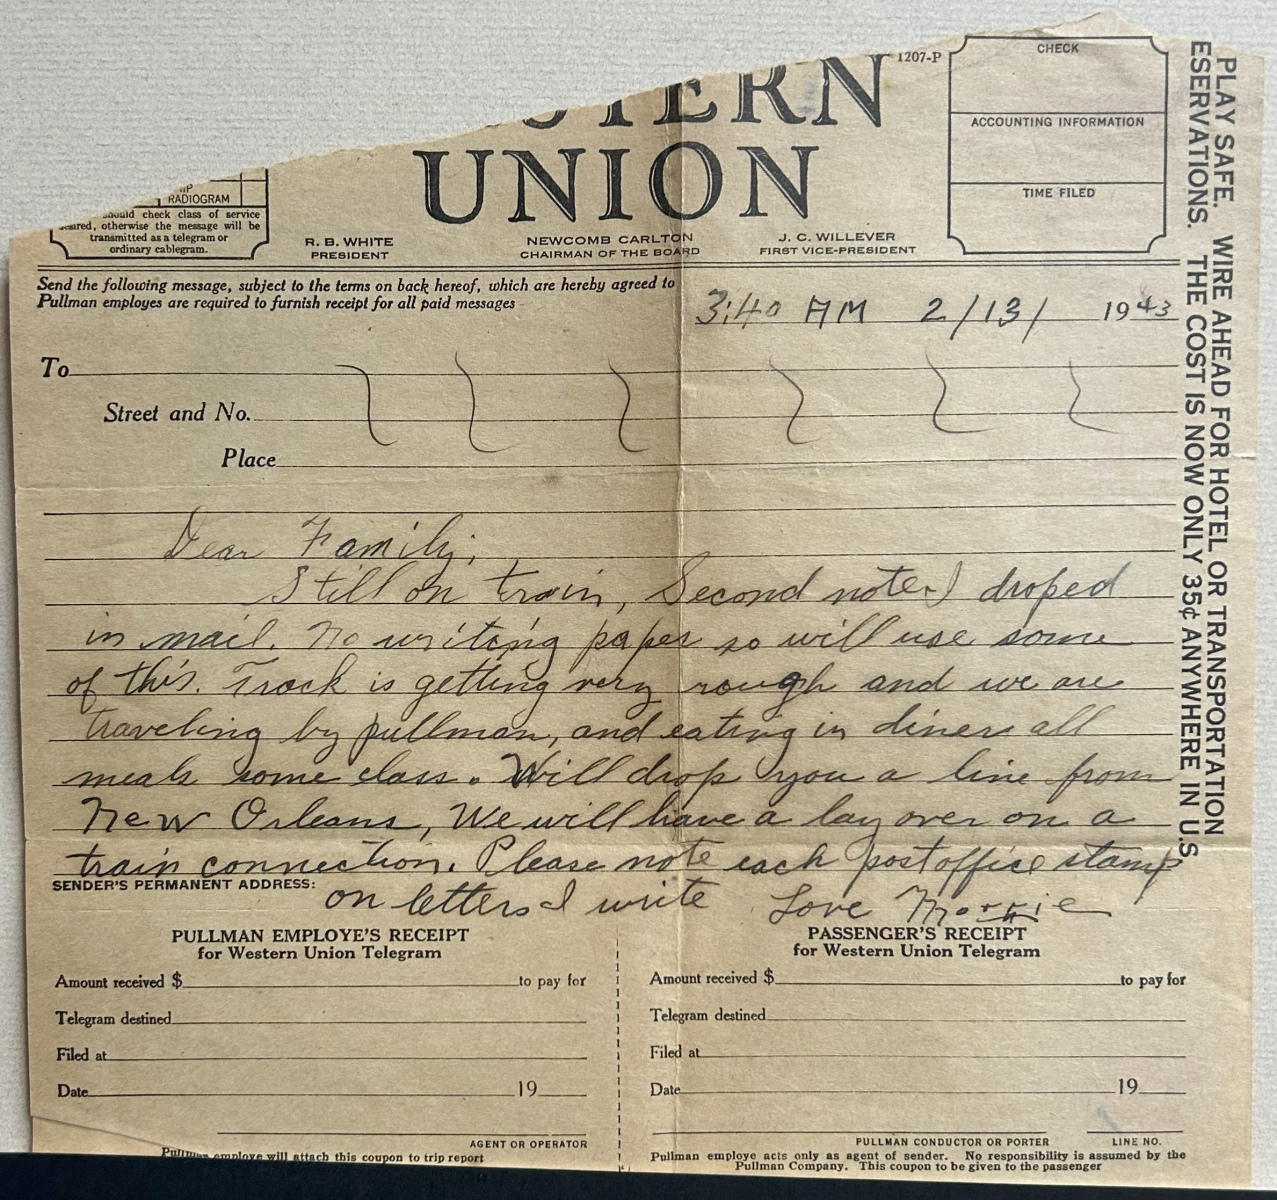 STERN
UNION
1207-P
CHECK
ACCOUNTING INFORMATION
TIME FILED
RADIOGRAM
should check class of service
desired, otherwise the message will be
transmitted as a telegram or
ordinary cablegram.
R. B. WHITE
PRESIDENT
NEWCOMB CARLTON
CHAIRMAN OF THE BOARD
J. C. WILLEVER
FIRST VICE-PRESIDENT
PLAY SAFE. WIRE AHEAD FOR HOTEL OR TRANSPORTATION
ESERVATIONS. THE COST IS NOW ONLY 35¢ ANYWHERE IN U.S
Send the following message, subject to the terms on back hereof, which are hereby agreed to
Pullman employes are required to furnish receipt for all paid messages
3:40 AM 2/13/ 1943
To
Street and No.
Place
Dear Family;
Still on train, Second note I droped
in mail. No writing paper so will use some
of this. Track is getting very rough and we are
traveling by pullman, and eating in diner all
meals some class. Will drop you a line from
New Orleans, We will have a lay over on a
train connection. Please note each post office stamp
SENDER'S PERMANENT ADDRESS:
on letters I write Love Morrie
PULLMAN EMPLOYE'S RECEIPT
for Western Union Telegram
Amount received $ to pay for
Telegram destined
Filed at
Date 19
AGENT OR OPERATOR
Pullman employe will attach this coupon to trip report
PASSENGER'S RECEIPT
for Western Union Telegram
Amount received $ to pay for
Telegram destined
Filed at
Date 19
PULLMAN CONDUCTOR OR PORTER LINE NO.
Pullman employe acts only as agent of sender. No responsibility is assumed by the
Pullman Company. This coupon to be given to the passenger